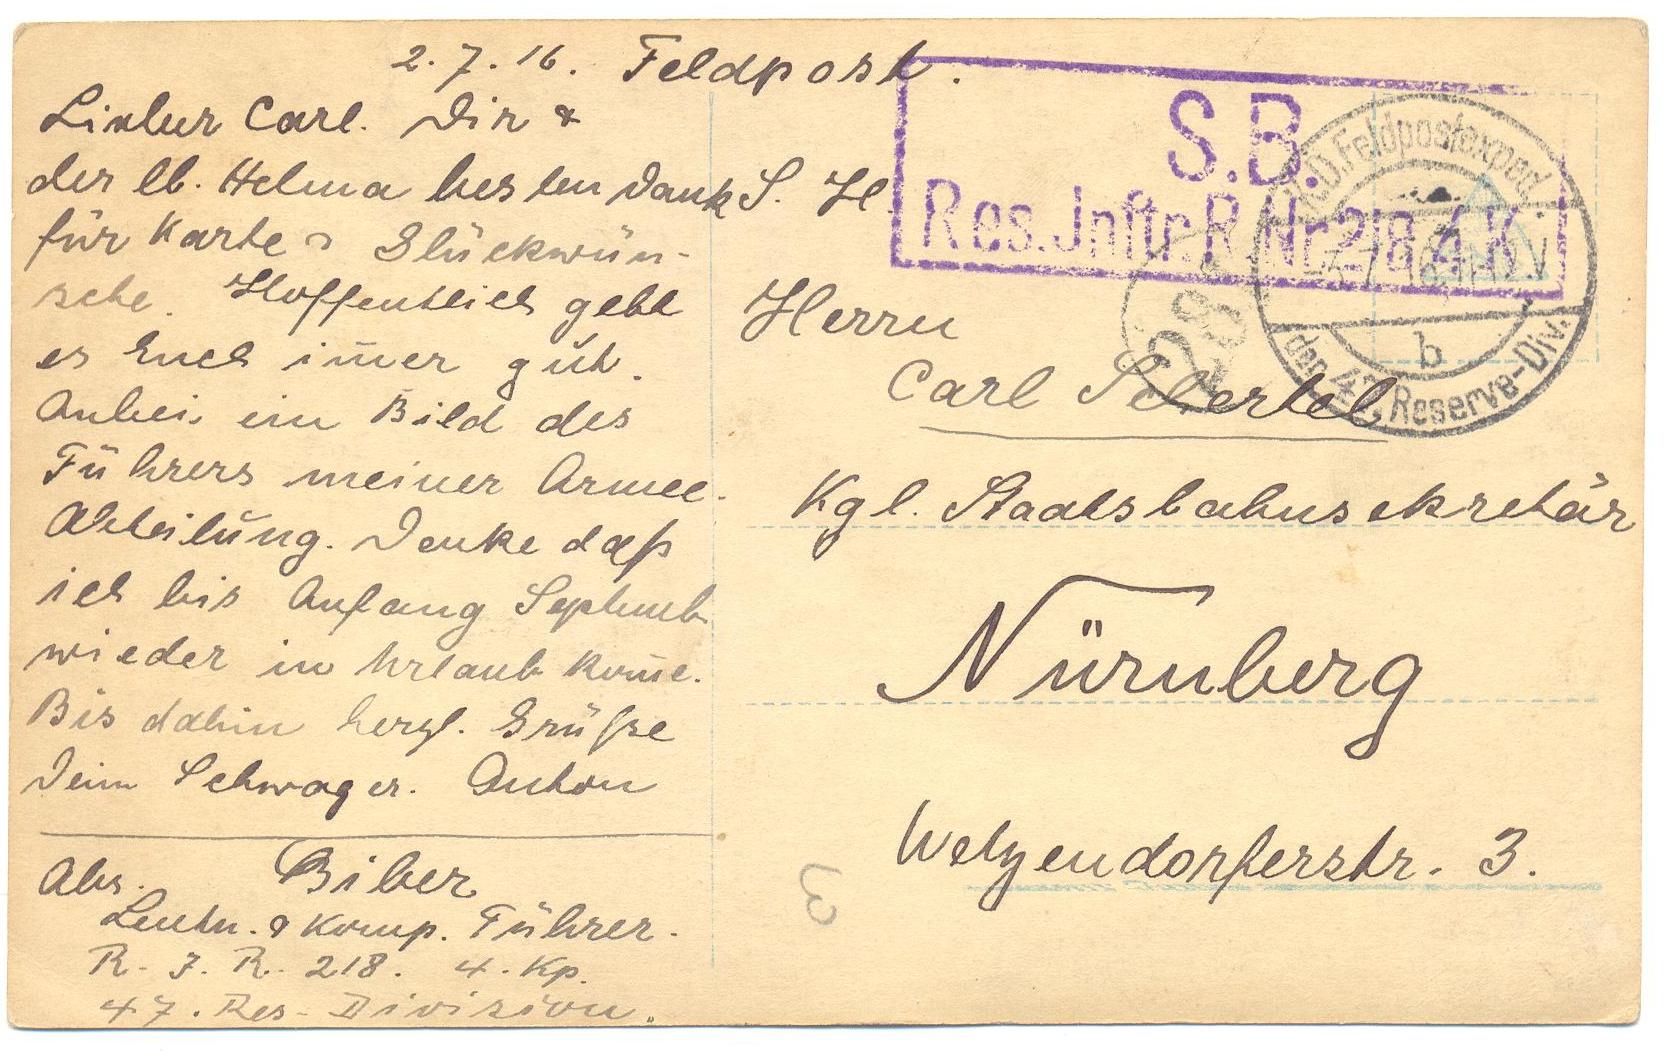 2.7.16. Feldpost.
Lieber Carl. Dir &
der lb. Helma besten Dank
für Karte & Glückwün-
sche. Hoffentlich geht
es Euch im̄er gut.
Anbei ein Bild des
Führers meiner Armee-
Abteilung. Denke daß
ich bis Anfang Septemb
wieder in Urlaub kom̄e.
Bis dahin herzl. Grüße
Dein Schwager. Anton
Abs. Biber
Leutn. & Komp. Führer.
R. J. R. 218. 4. Kp.
47. Res- Division.
S. B.
Res. Jnftr. R. Nr. 218 4. K.
K.D. Feldpostexped.
b
der 47. Reserve-Div.
28
S. H.
Herrn
Carl Schertel
Kgl. Staatsbahnsekretär
Nürnberg
Welzendorferstr. 3.
3